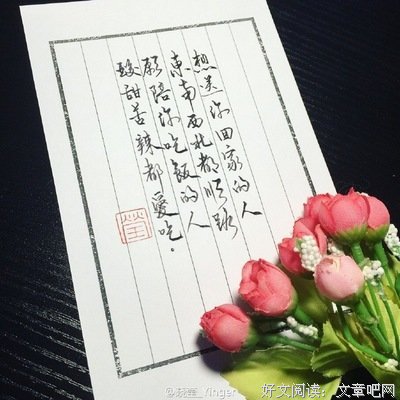 想送你回家的人
東南西北都順路
願陪你吃飯的人
酸甜苦辣都愛吃。
瑩
@晓莹_Yinger
好文阅读:文章吧网